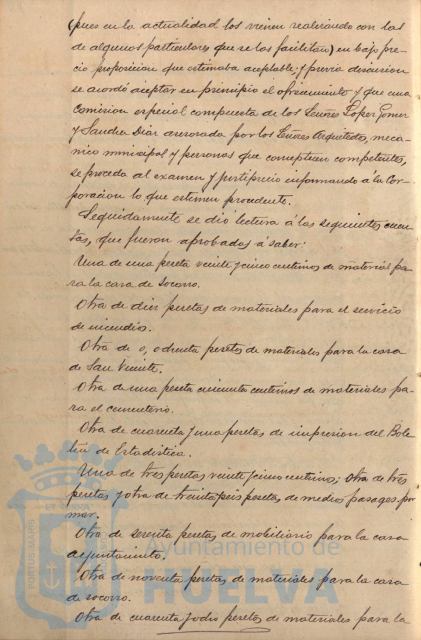 (pues en la actualidad los vienen realizando con las
de algunos particulares que se los facilitan) en bajo pre-
cio proposicion que estimaba aceptable; y previa discusion
se acordó aceptar en principio el ofrecimiento y que una
Comision especial compuesta de los Señores Lopez Gomez
y Sanchez Diaz asesorada por los Señores Arquitecto, meca-
nico municipal y personas que conceptuen competentes,
se proceda al examen y justiprecio informando á la Cor-
poracion lo que estimen procedente.
Seguidamente se dió lectura á las seguientes cuen-
tas, que fueron aprobadas á saber:
Una de una peseta veinte y cinco centimos de material pa-
ra la casa de Socorro.
Otra de diez pesetas de materiales para el servicio
de incendios.
Otra de pesetas de materiales para la casa
de San Vicente.
Otra de una peseta cincuenta centimos de materiales pa-
ra el cementerio.
Otra de cuarenta y una pesetas de impresion del Bole-
tin de Estadistica.
Una de tres pesetas veinte y cinco centimos; otra de tres
pesetas y otra de treinta y seis pesetas de medios pasages por
mar.
Otra de sesenta pesetas de mobiliario para la casa
Ayuntamiento.
Otra de noventa pesetas de materiales para la casa
de socorro.
Otra de cuarenta y ocho pesetas de materiales para la
PORTUS MARIS
Ayuntamiento de
HUELVA